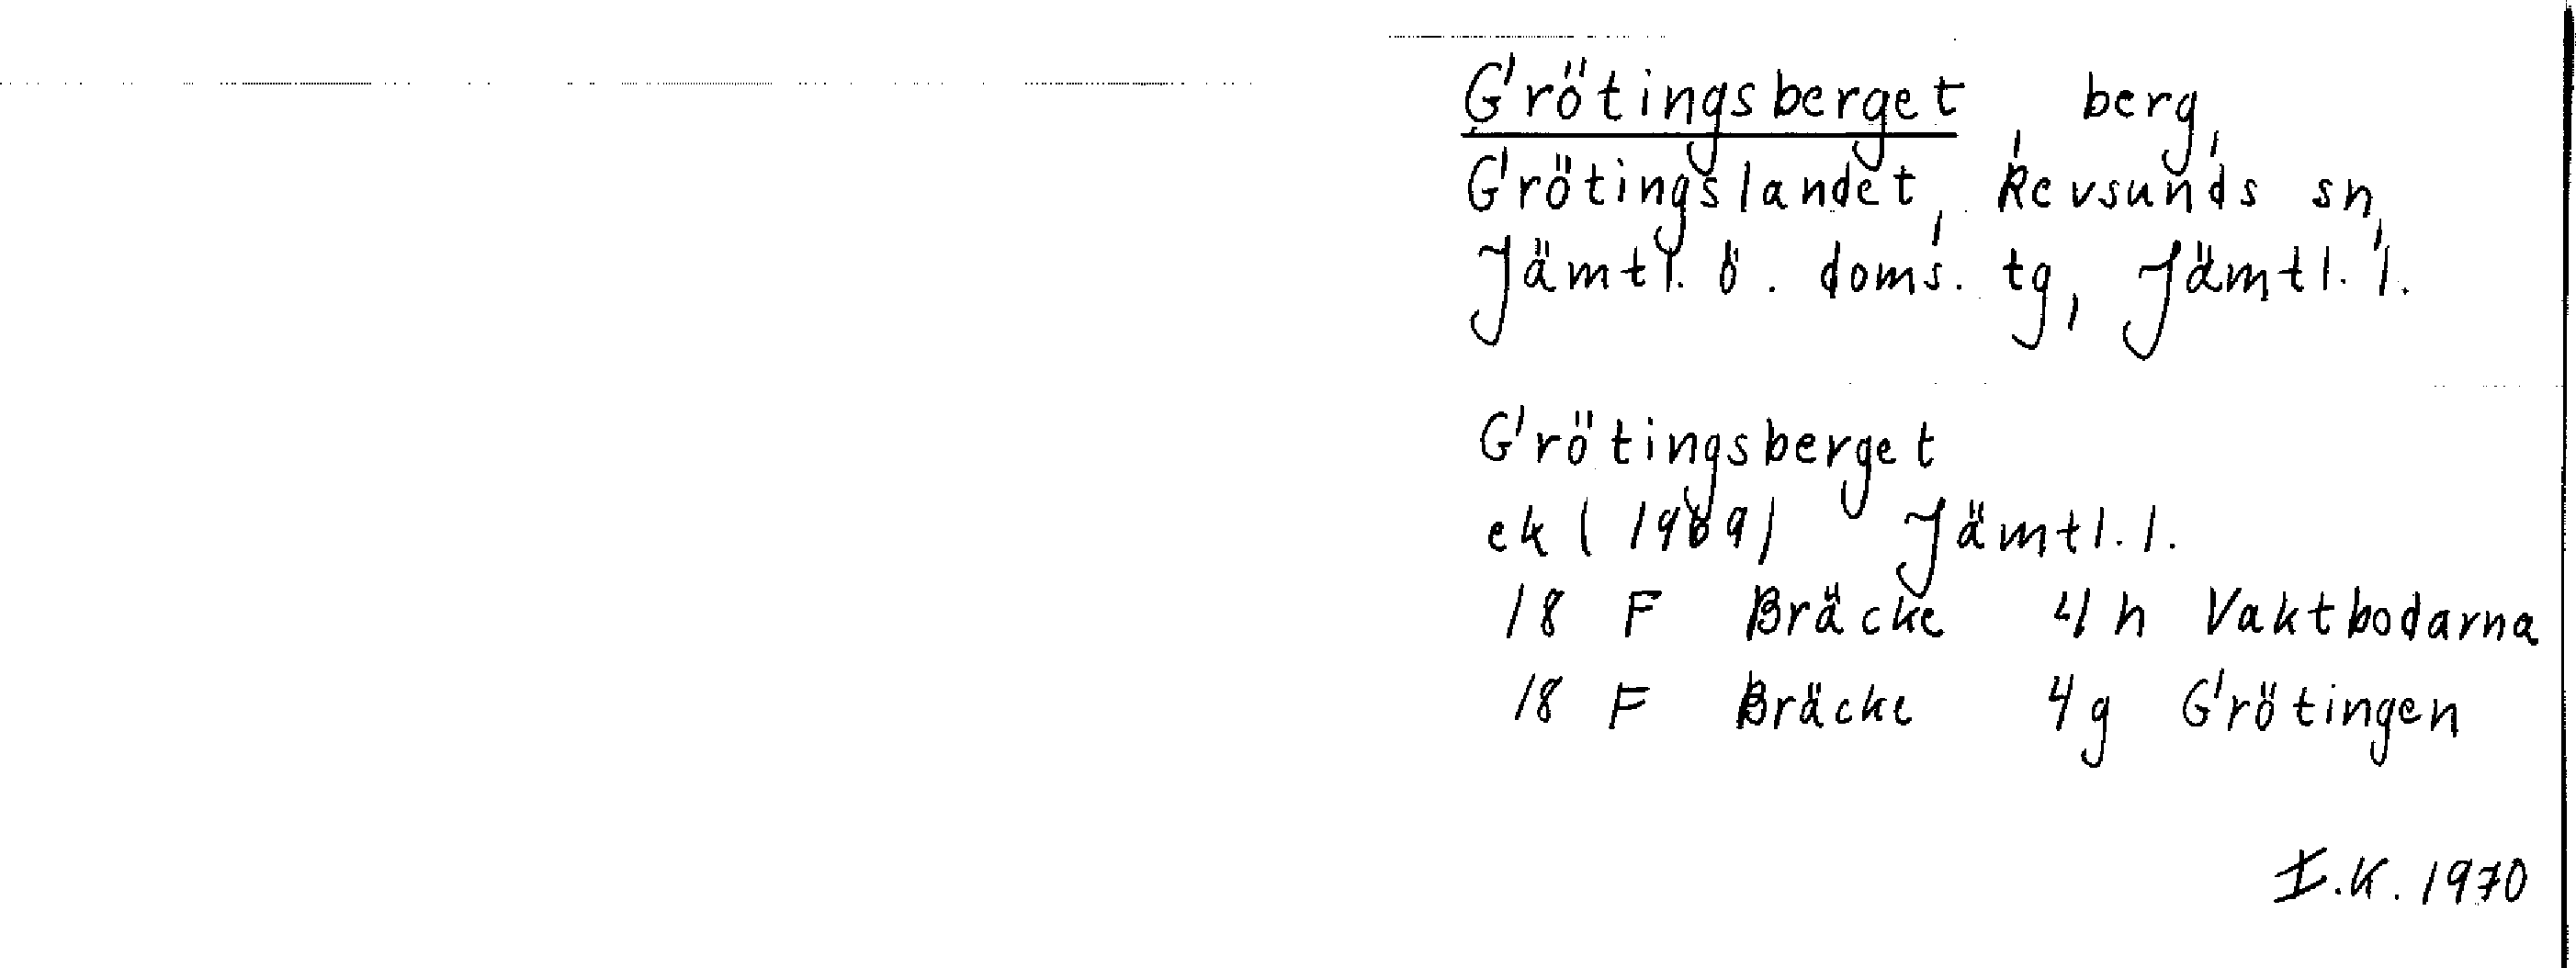 Grötingsberget, berg,
Grötingslandet, Revsunds sn,
Jämtl. ö. doms. tg, Jämtl. l.
Grötingsberget
ek (1969) Jämtl. l.
18 F Bräcke 4 h Vaktbodarna
18 F Bräcke 4 g Grötingen
I.K. 1970